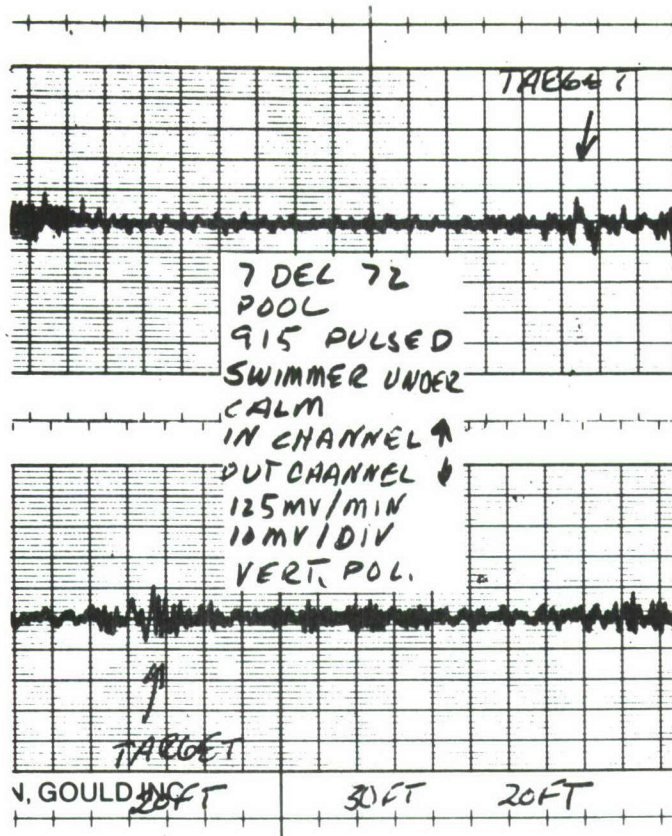 TARGET
7 DEC 72
POOL
915 PULSED
SWIMMER UNDER
CALM
IN CHANNEL ↑
OUT CHANNEL ↓
125MV/MIN
10MV/DIV
VERT. POL.
TARGET
N, GOULD INC 20FT 30FT 20FT